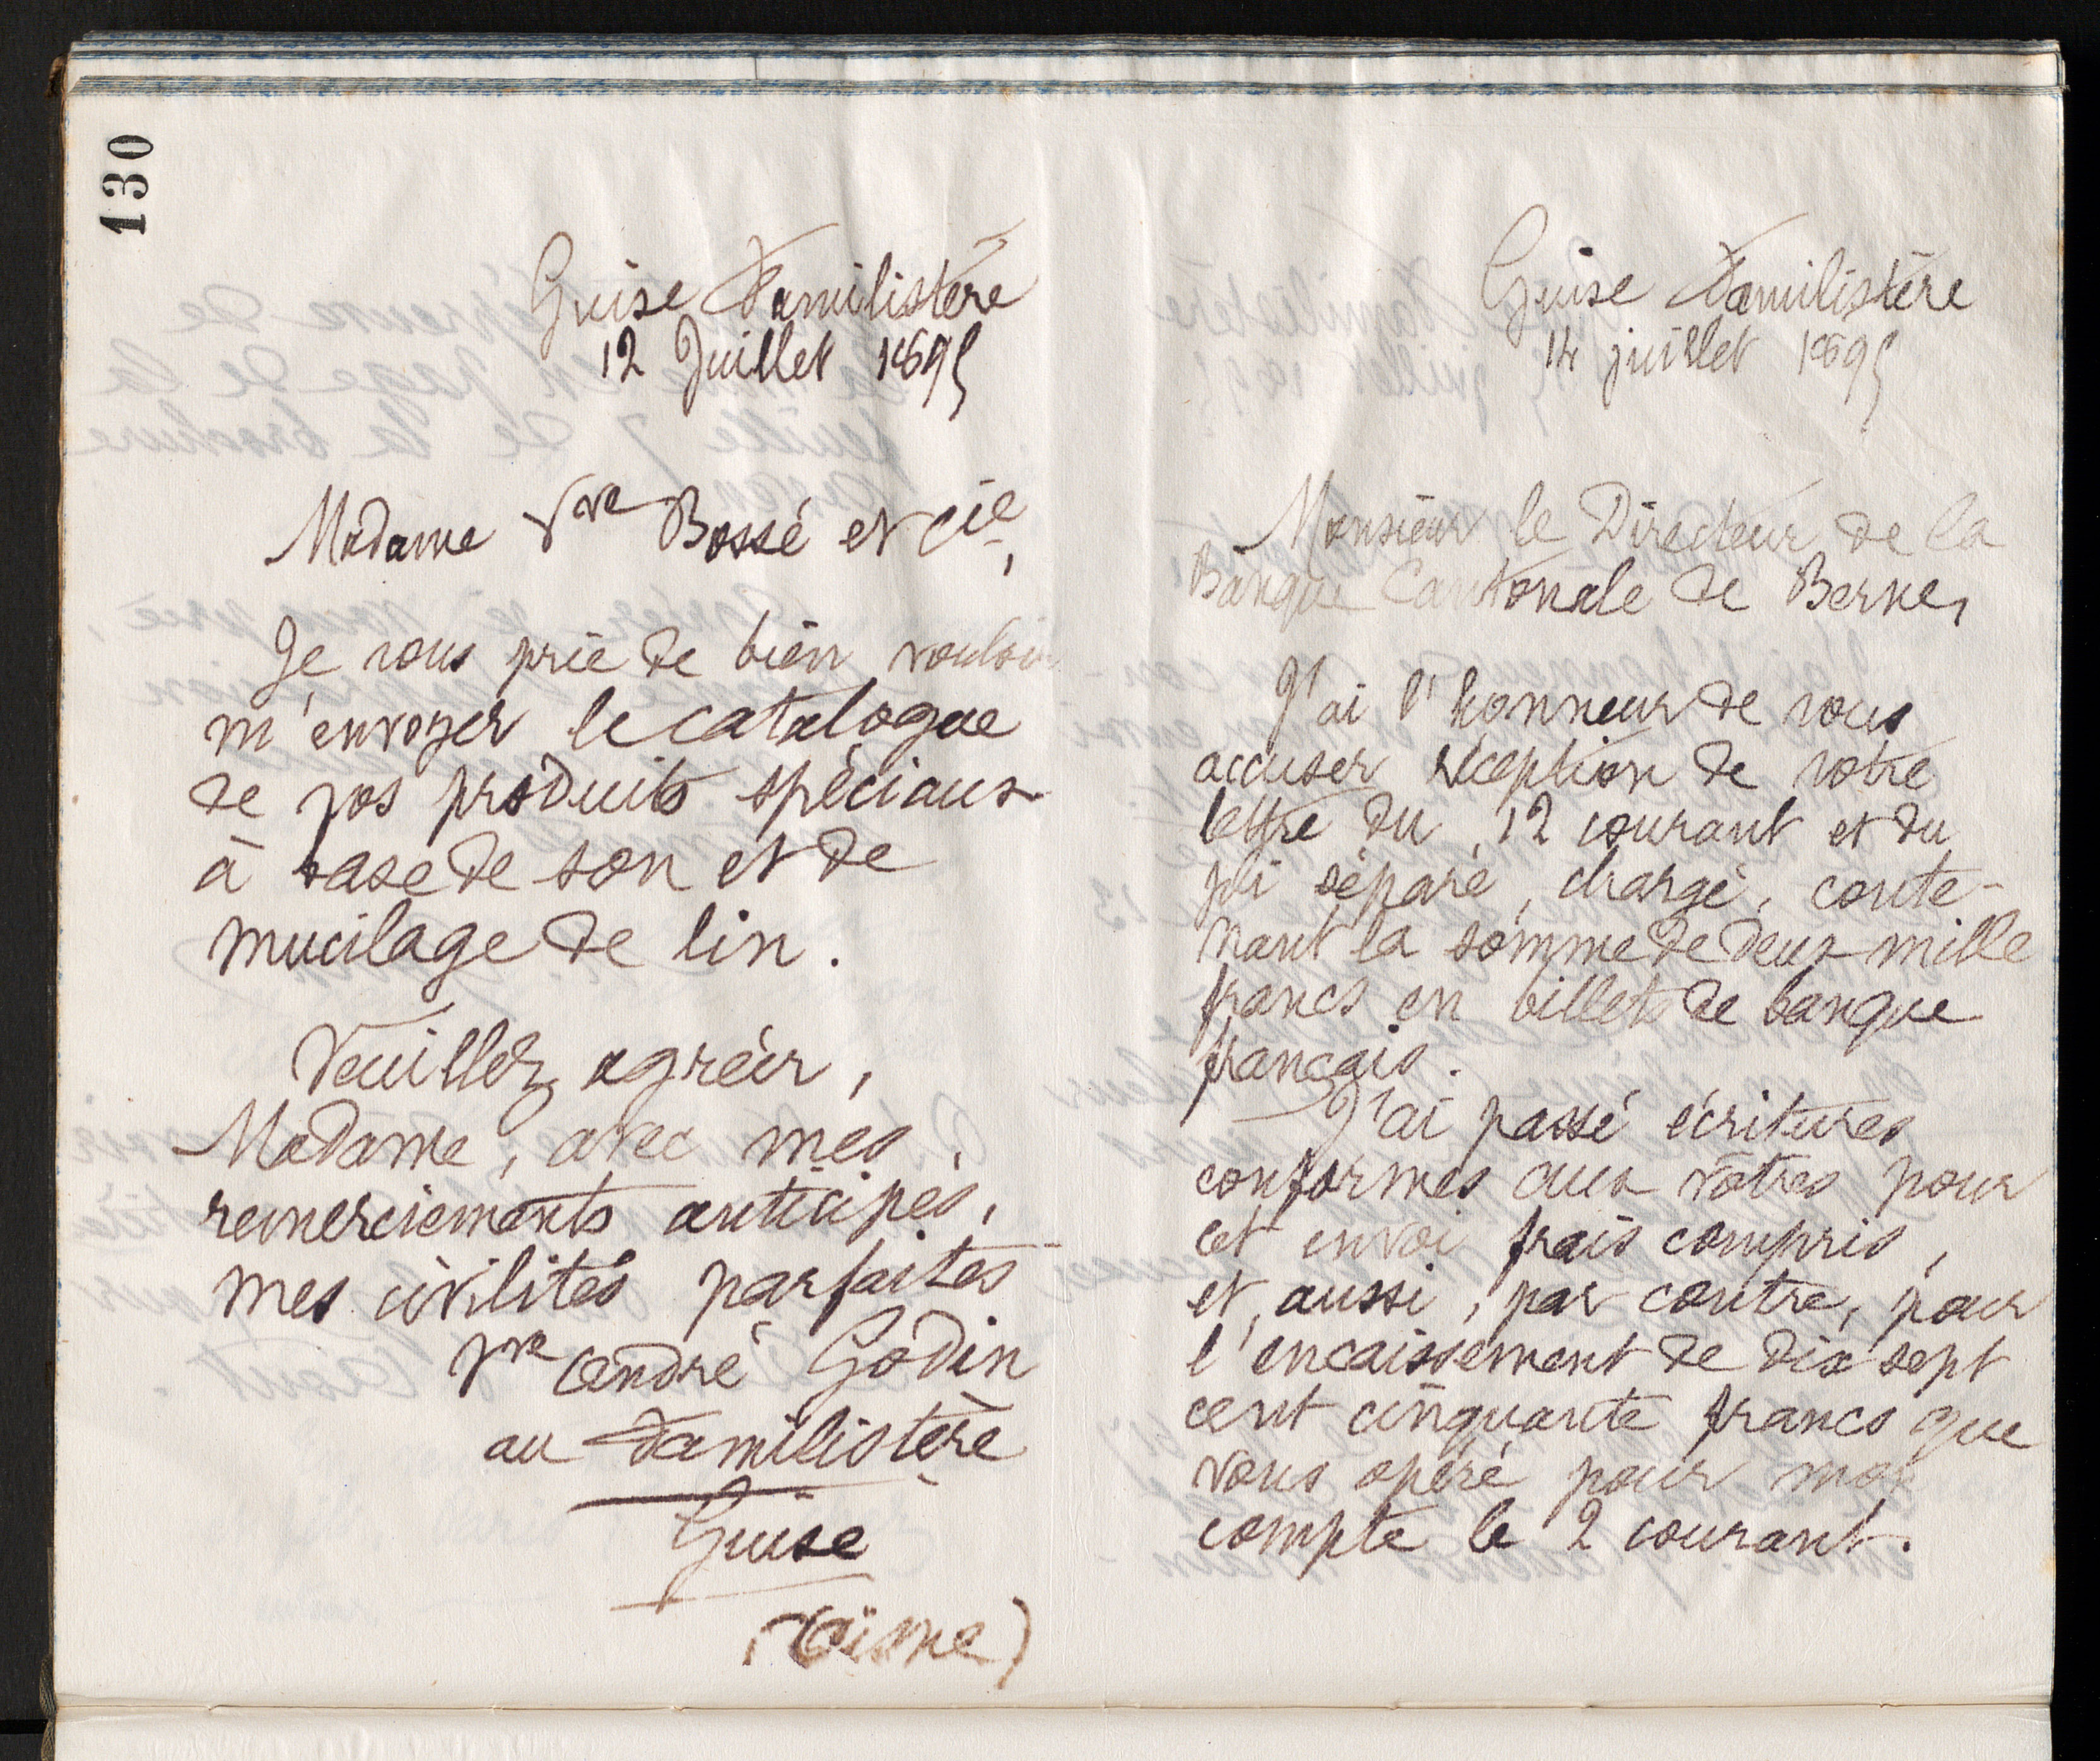 130
Guise Familistère
12 Juillet 1895
Madame Vve Bossé et Cie,
Je vous prie de bien vouloir
m'envoyer le catalogue
de vos produits spéciaux
à base de son et de
mucilage de lin.
Veuillez agréer,
Madame, avec mes
remerciements anticipés,
mes civilités parfaites
Vve André Godin
au Familistère
Guise
(Aisne)
Guise Familistère
14 juillet 1895
Monsieur le Directeur de la
Banque Cantonale de Berne,
J'ai l'honneur de vous
accuser réception de votre
lettre du 12 courant et du
pli séparé, chargé, conte-
nant la somme de deux mille
francs en billets de banque
français.
J'ai passé écritures
conformes aux vôtres pour
cet envoi frais compris,
et, aussi, par contre, pour
l'encaissement de dix sept
cent cinquante francs que
vous opéré pour mon
compte le 2 courant.